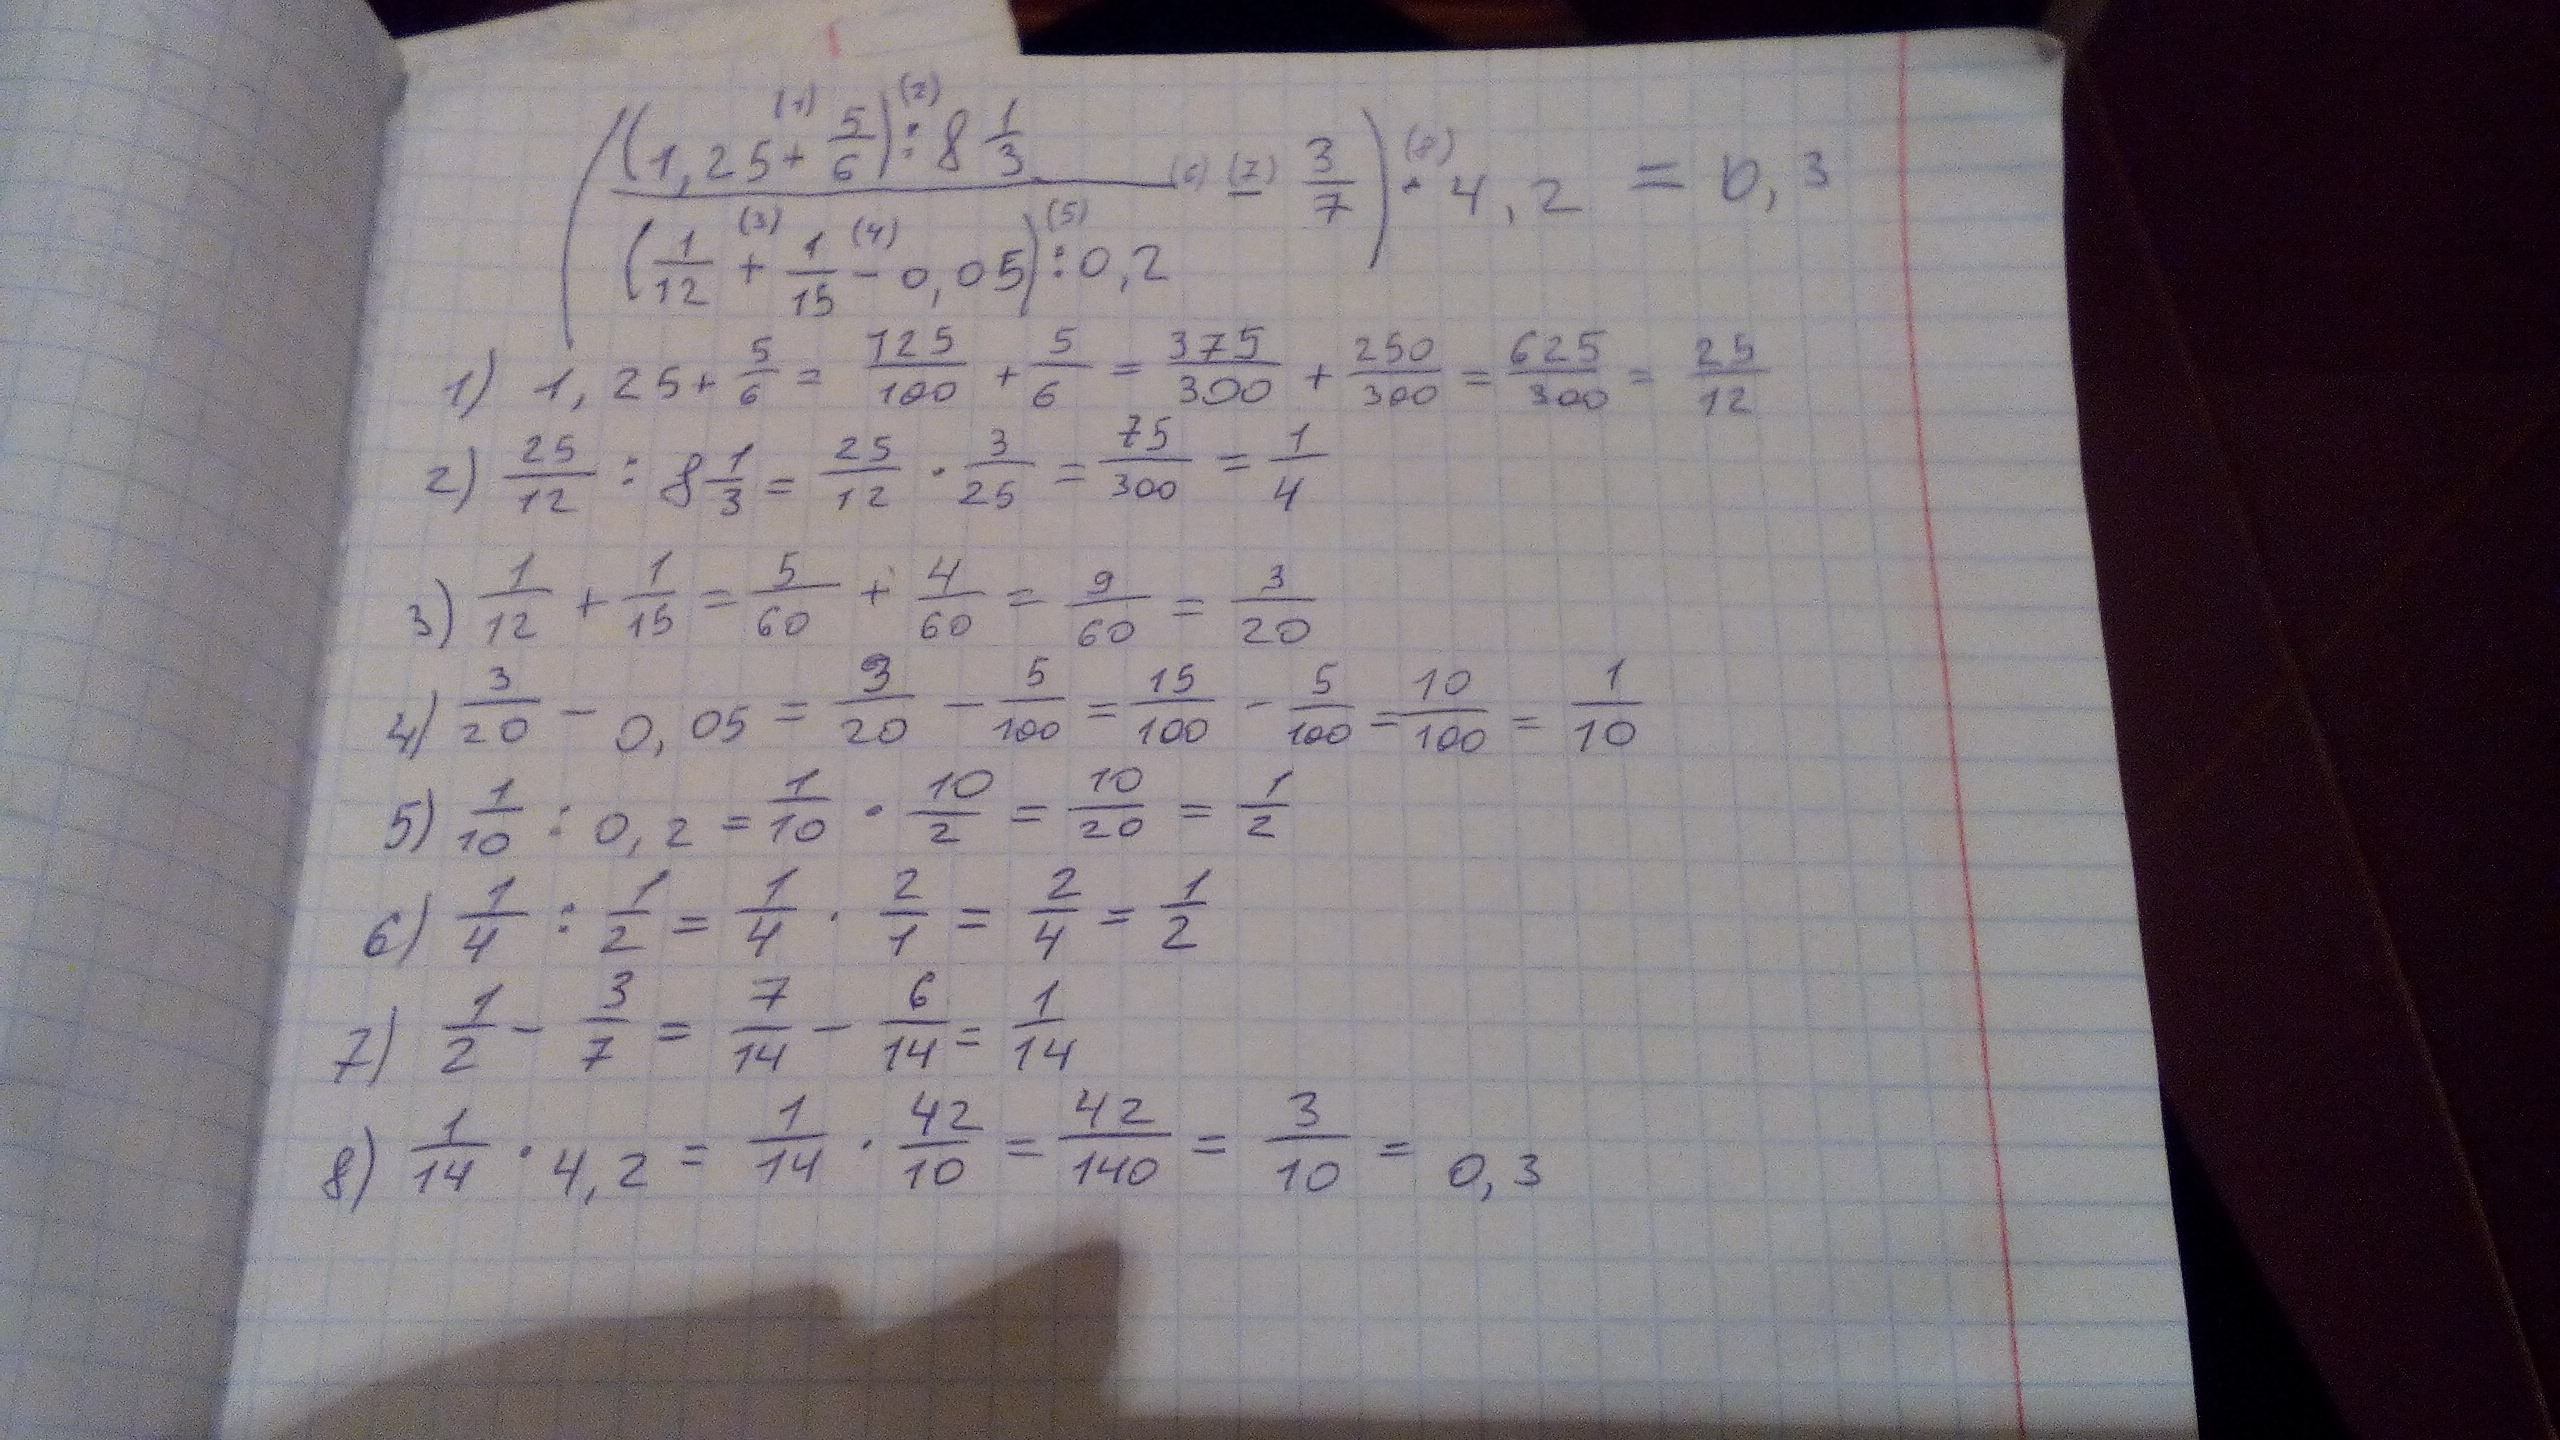 (((1,25 + 5/6) : 8 1/3) / ((1/12 + 1/15 - 0,05) : 0,2) - 3/7) · 4,2 = 0,3
(1) (2) (3) (4) (5) (6) (7) (8)
1) 1,25 + 5/6 = 125/100 + 5/6 = 375/300 + 250/300 = 625/300 = 25/12
2) 25/12 : 8 1/3 = 25/12 · 3/25 = 75/300 = 1/4
3) 1/12 + 1/15 = 5/60 + 4/60 = 9/60 = 3/20
4) 3/20 - 0,05 = 3/20 - 5/100 = 15/100 - 5/100 = 10/100 = 1/10
5) 1/10 : 0,2 = 1/10 · 10/2 = 10/20 = 1/2
6) 1/4 : 1/2 = 1/4 · 2/1 = 2/4 = 1/2
7) 1/2 - 3/7 = 7/14 - 6/14 = 1/14
8) 1/14 · 4,2 = 1/14 · 42/10 = 42/140 = 3/10 = 0,3